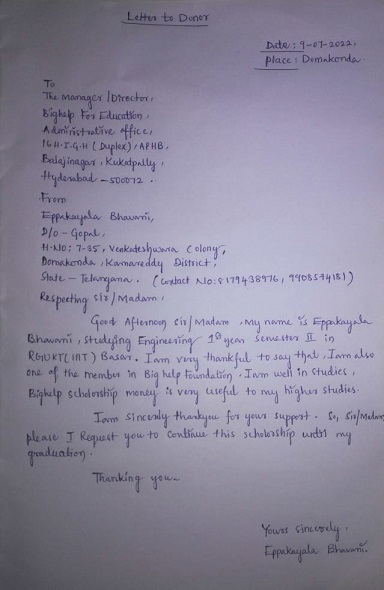 Letter to Donor
Date: 9-07-2022,
place: Domakonda
To
The manager/Director,
Bighelp For Education,
Administrative office,
16 H.I.G.H (Duplex), APHB,
Balajinagar, Kukatpally,
Hyderabad - 500072.
From
Eppakayala Bhavani,
D/o - Gopal,
H.NO: 7-35, Venkateshwara Colony,
Domakonda, Kamareddy District,
State - Telangana. (Contact No: 8179438976, 9908574181)
Respecting sir/Madam,
Good Afternoon sir/Madam, My name is Eppakayala
Bhavani, studying Engineering 1st year semester II in
RGUKT(IIIT) Basar. I am very thankful to say that, I am also
one of the member in Big help Foundation. I am well in studies,
Bighelp scholarship money is very useful to my higher studies.
I am sincerly thankyou for your support. So, Sir/Madam
please I Request you to Continue this scholarship until my
graduation.
Thanking you
Yours sincerely,
Eppakayala Bhavani.